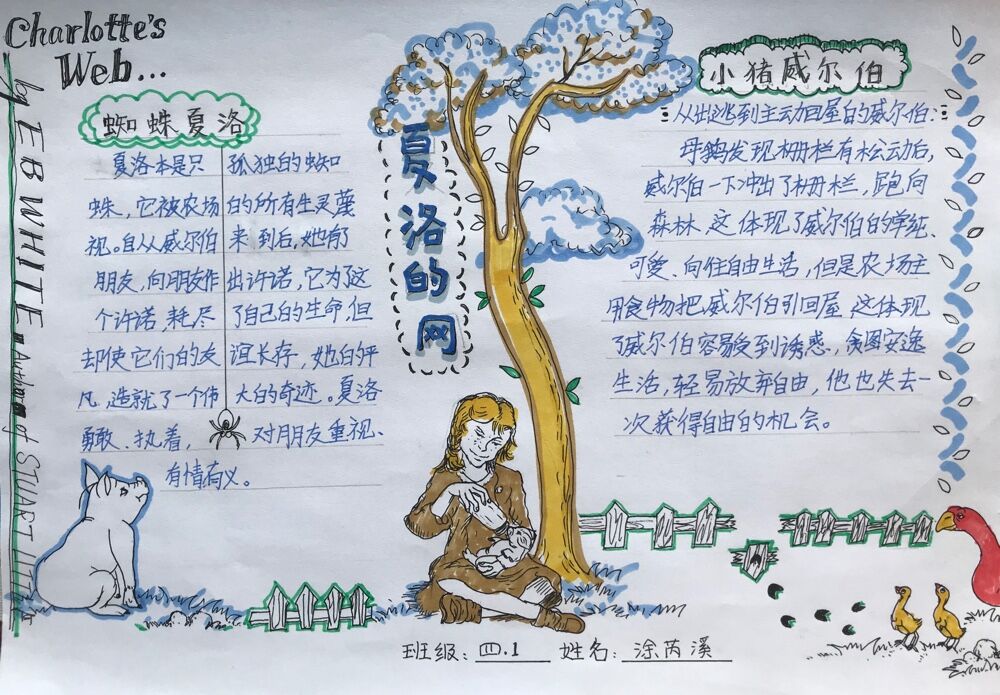 Charlotte's
Web...
by E B WHITE Author of STUART LITTLE
蜘蛛夏洛
夏洛本是只孤独的蜘
蛛，它被农场的所有生灵蔑
视。自从威尔伯来到后，她有了
朋友，向朋友作出许诺，它为了这
个许诺，耗尽了自己的生命，但
却使它们的友谊长存，她白的平
凡，造就了一个伟大白的奇迹。夏洛
勇敢、执着，对朋友重视、
有情有义。
夏洛的网
小猪威尔伯
从出逃到主动回屋白的威尔伯：
母鹅发现栅栏有松动后，
威尔伯一下冲出了栅栏，跑向
森林，这体现了威尔伯白的单纯、
可爱、向往自由生活，但是农场主
用食物把威尔伯引回屋，这体现
了威尔伯容易受到诱惑，贪图安逸
生活，轻易放弃自由，他也失去一
次获得自由的机会。
班级：四.1 姓名：涂芮溪